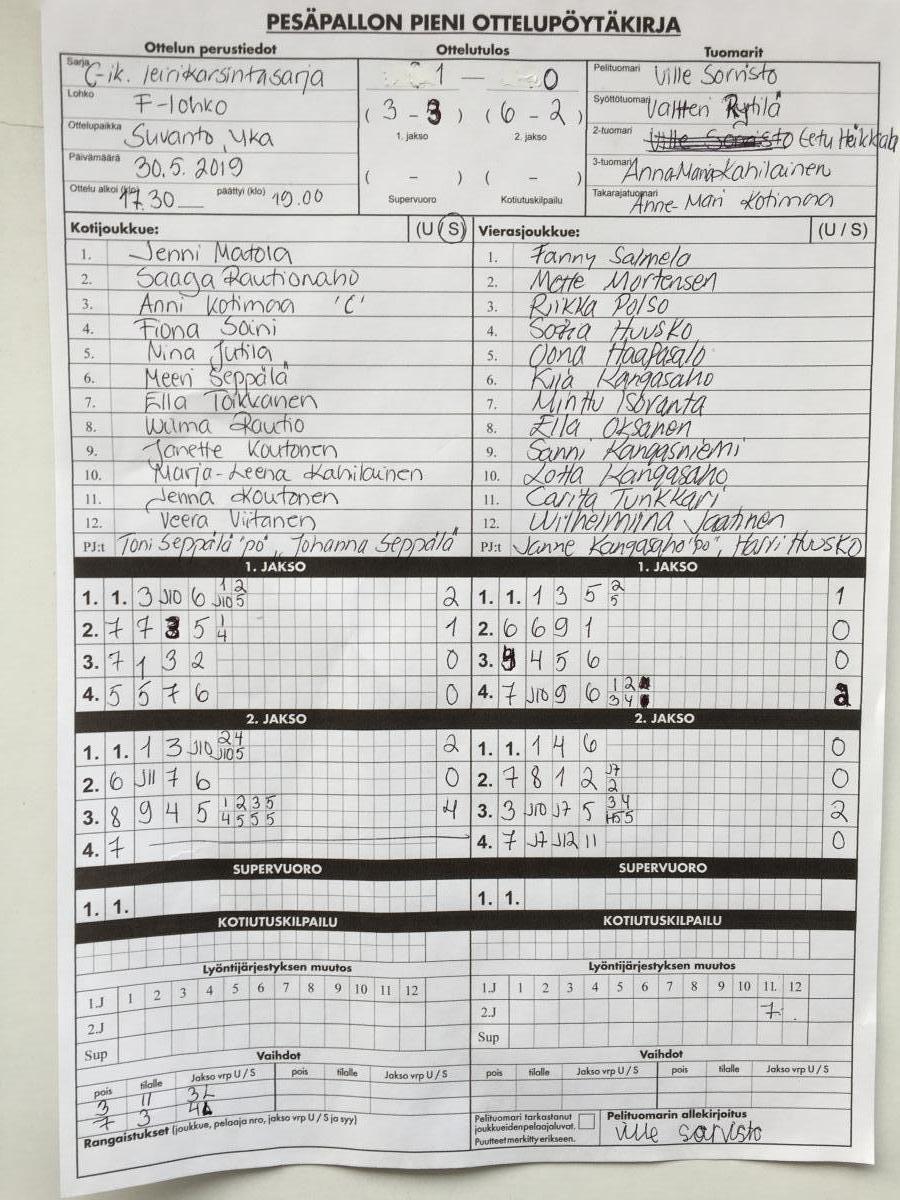 PESÄPALLON PIENI OTTELUPÖYTÄKIRJA
Ottelun perustiedot
Ottelutulos
Tuomarit
Sarja C-ik. leirikarsintasarja
1 — 0
Pelituomari Ville Sorvisto
Lohko F-lohko
( 3 - 3 ) ( 6 - 2 )
Syöttötuomari Valtteri Rytilä
Ottelupaikka Suvanto, Yka
1. jakso 2. jakso
2-tuomari Eetu Heikkala
Päivämäärä 30.5. 2019
( - ) ( - )
3-tuomari Anna-Maria Kahilainen
Ottelu alkoi (klo) 17.30 päättyi (klo) 19.00
Supervuoro Kotiutuskilpailu
Takarajatuomari Anne-Mari Kotimaa
Kotijoukkue: (U / S)
Vierasjoukkue: (U / S)
1. Jenni Matola
2. Saaga Rautionaho
3. Anni Kotimaa 'C'
4. Fiona Soini
5. Nina Jutila
6. Meeri Seppälä
7. Ella Toikkanen
8. Wilma Rautio
9. Janette Koutonen
10. Marja-Leena Kahilainen
11. Jenna Koutonen
12. Veera Viitanen
PJ:t Toni Seppälä 'po', Johanna Seppälä
1. Fanny Salmela
2. Mette Mortensen
3. Riikka Polso
4. Sofia Huusko
5. Oona Haapasalo
6. Kiia Kangasaho
7. Minttu Isoranta
8. Ella Oksanen
9. Sanni Kangasniemi
10. Lotta Kangasaho
11. Carita Tunkkari
12. Wilhelmiina Jaatinen
PJ:t Janne Kangasaho 'po', Harri Huusko
1. JAKSO
1. 1. 3 J10 6 1 2 J10 5 2
2. 7 7 3 5 1 4 1
3. 7 1 3 2 0
4. 5 5 7 6 0
1. JAKSO
1. 1. 1 3 5 2 5 1
2. 6 6 9 1 0
3. 9 4 5 6 0
4. 7 J10 9 6 1 2 3 4 2
2. JAKSO
1. 1. 1 3 J10 2 4 J10 5 2
2. 6 J11 7 6 0
3. 8 9 4 5 1 2 3 5 4 5 5 5 4
4. 7
2. JAKSO
1. 1. 1 4 6 0
2. 7 8 1 2 J7 2 0
3. 3 J10 J7 5 3 4 5 2
4. 7 J7 J12 11 0
SUPERVUORO
1. 1.
SUPERVUORO
1. 1.
KOTIUTUSKILPAILU
KOTIUTUSKILPAILU
Lyöntijärjestyksen muutos
1.J 1 2 3 4 5 6 7 8 9 10 11 12
2.J
Sup
Lyöntijärjestyksen muutos
1.J 1 2 3 4 5 6 7 8 9 10 11. 12
2.J 7.
Sup
Vaihdot
pois tilalle Jakso vrp U / S pois tilalle Jakso vrp U / S
3 11 3L
7 3
Vaihdot
pois tilalle Jakso vrp U / S pois tilalle Jakso vrp U / S
Rangaistukset (joukkue, pelaaja nro, jakso vrp U / S ja syy)
Pelituomari tarkastanut
joukkueiden pelaajaluvat.
Puutteet merkitty erikseen.
Pelituomarin allekirjoitus
Ville Sorvisto